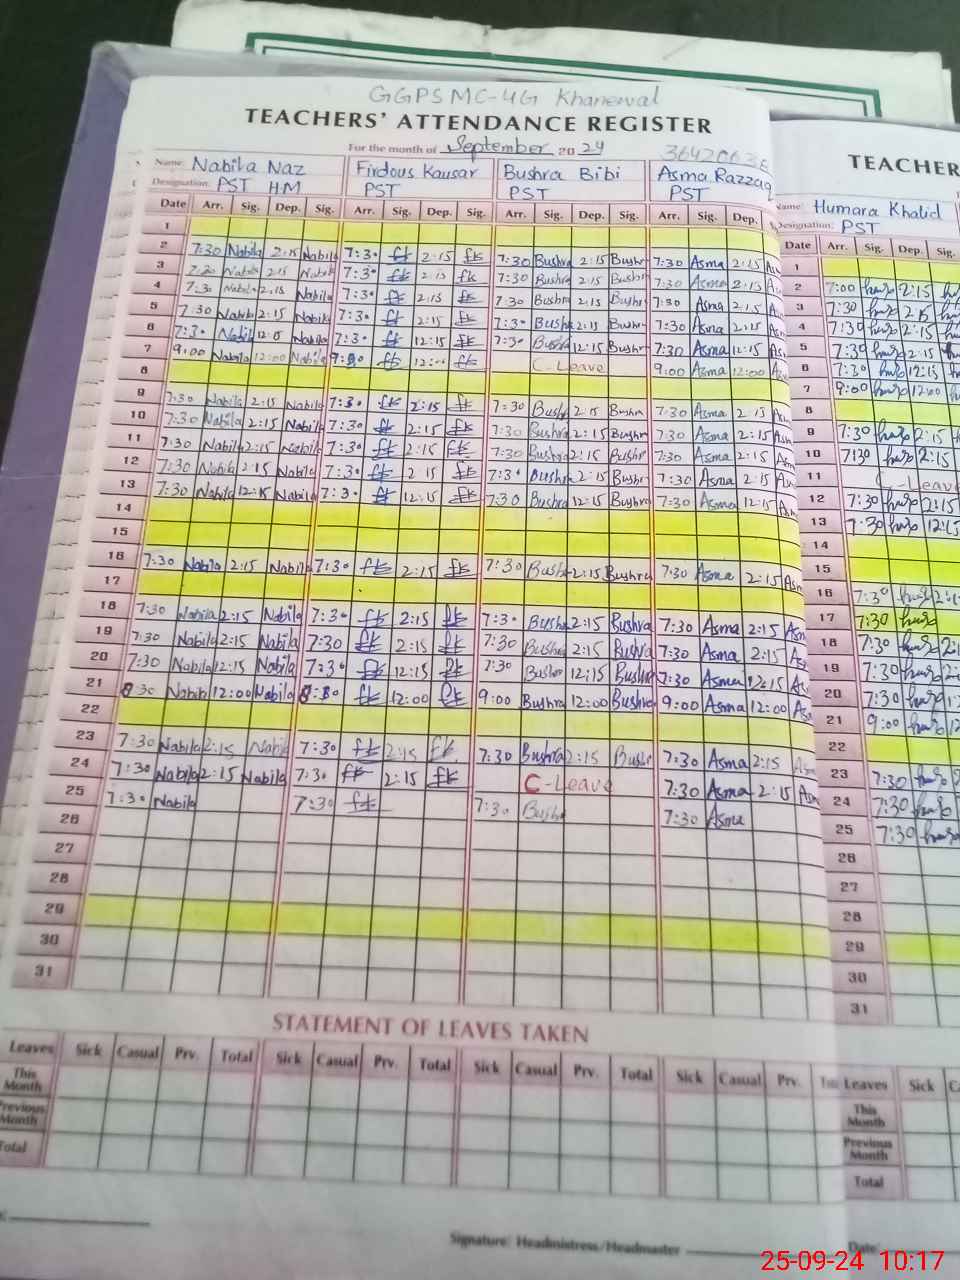 GGPS MC-4G Khanewal
TEACHERS' ATTENDANCE REGISTER
For the month of September 2024
Name: Nabila Naz Firdous Kausar Bushra Bibi Asma Razzaq
Designation: PST HM PST PST PST
Date Arr. Sig. Dep. Sig. Arr. Sig. Dep. Sig. Arr. Sig. Dep. Sig. Arr. Sig. Dep.
1
2 7:30 Nabila 2:15 Nabila 7:30 fk 2:15 fk 7:30 Bushra 2:15 Bushra 7:30 Asma 2:15
3 7:30 Nabila 2:15 Nabila 7:30 fk 2:15 fk 7:30 Bushra 2:15 Bushra 7:30 Asma 2:15
4 7:30 Nabila 2:15 Nabila 7:30 fk 2:15 fk 7:30 Bushra 2:15 Bushra 7:30 Asma 2:15
5 7:30 Nabila 2:15 Nabila 7:30 fk 2:15 fk 7:30 Bushra 2:15 Bushra 7:30 Asma 2:15
6 7:30 Nabila 12:15 Nabila 7:30 fk 12:15 fk 7:30 Bushra 12:15 Bushra 7:30 Asma 12:15
7 9:00 Nabila 12:00 Nabila fk 12:00 fk C-Leave 9:00 Asma 12:00
8
9 7:30 Nabila 2:15 Nabila 7:30 fk 2:15 fk 7:30 Bush 2:15 Bushra 7:30 Asma 2:15
10 7:30 Nabila 2:15 Nabila 7:30 fk 2:15 fk 7:30 Bushra 2:15 Bushra 7:30 Asma 2:15
11 7:30 Nabila 2:15 Nabila 7:30 fk 2:15 fk 7:30 Bushra 2:15 Bushra 7:30 Asma 2:15
12 7:30 Nabila 2:15 Nabila 7:30 fk 2:15 fk 7:30 Bushra 2:15 Bushra 7:30 Asma 2:15
13 7:30 Nabila 12:15 Nabila 7:30 fk 12:15 fk 7:30 Bushra 12:15 Bushra 7:30 Asma 12:15
14
15
16 7:30 Nabila 2:15 Nabila 7:30 fk 2:15 fk 7:30 Bush 2:15 Bushra 7:30 Asma 2:15
17
18 7:30 Nabila 2:15 Nabila 7:30 fk 2:15 fk 7:30 Bushra 2:15 Bushra 7:30 Asma 2:15
19 7:30 Nabila 2:15 Nabila 7:30 fk 2:15 fk 7:30 Bushra 2:15 Bushra 7:30 Asma 2:15
20 7:30 Nabila 12:15 Nabila 7:30 fk 12:15 fk 7:30 Bushra 12:15 Bushra 7:30 Asma 12:15
21 8:30 Nabila 12:00 Nabila fk 12:00 fk 9:00 Bushra 12:00 Bushra 9:00 Asma 12:00
22
23 7:30 Nabila 2:15 Nabila 7:30 fk 2:15 fk 7:30 Bushra 2:15 Bushra 7:30 Asma 2:15
24 7:30 Nabila 2:15 Nabila 7:30 fk 2:15 fk C-Leave 7:30 Asma 2:15
25 7:30 Nabila 7:30 fk 7:30 Bushra 7:30 Asma
26
27
28
29
30
31
STATEMENT OF LEAVES TAKEN
Leaves Sick Casual Prv. Total Sick Casual Prv. Total Sick Casual Prv. Total Sick Casual Prv.
This Month
Previous Month
Total
Signature: Headmistress/Headmaster
TEACHER
Name: Humara Khalid
Designation: PST
Date Arr. Sig. Dep. Sig.
1
2 7:00 2:15
3 7:30 2:15
4 7:30 2:15
5 7:30 2:15
6 7:30 12:15
7 9:00 12:00
8
9 7:30 2:15
10 7:30 2:15
11 C-Leave
12 7:30 2:15
13 7:30 12:15
14
15
16 7:30
17 7:30
18 7:30
19 7:30
20 7:30
21 9:00
22
23 7:30
24 7:30
25 7:30
26
27
28
29
30
31
Leaves Sick
This Month
Previous Month
Total
Date:
25-09-24 10:17